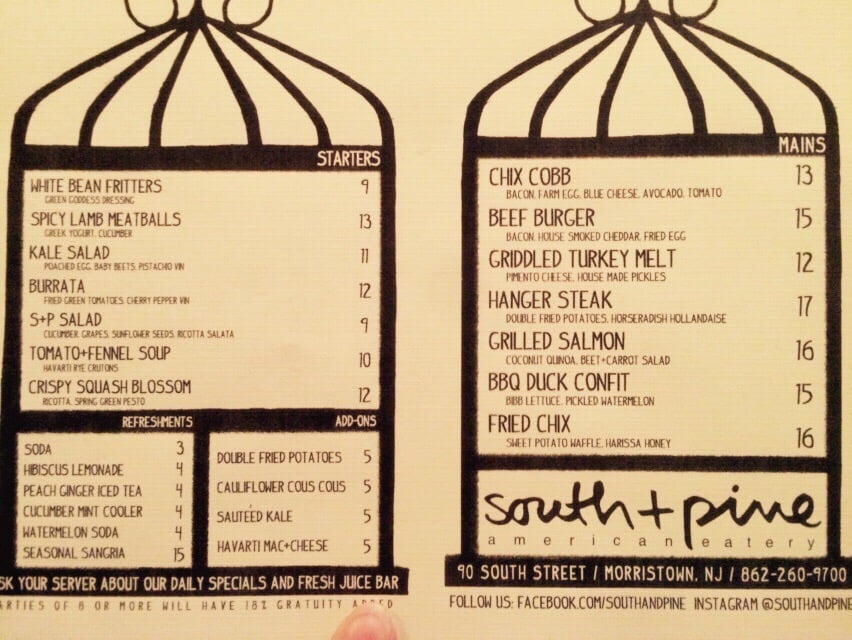 STARTERS
WHITE BEAN FRITTERS 9
GREEN GODDESS DRESSING
SPICY LAMB MEATBALLS 13
GREEK YOGURT, CUCUMBER
KALE SALAD 11
POACHED EGG, BABY BEETS, PISTACHIO VIN
BURRATA 12
FRIED GREEN TOMATOES, CHERRY PEPPER VIN
S+P SALAD 9
CUCUMBER, GRAPES, SUNFLOWER SEEDS, RICOTTA SALATA
TOMATO+FENNEL SOUP 10
HAVARTI RYE CRUTONS
CRISPY SQUASH BLOSSOM 12
RICOTTA, SPRING GREEN PESTO
REFRESHMENTS
SODA 3
HIBISCUS LEMONADE 4
PEACH GINGER ICED TEA 4
CUCUMBER MINT COOLER 4
WATERMELON SODA 4
SEASONAL SANGRIA 15
ADD-ONS
DOUBLE FRIED POTATOES 5
CAULIFLOWER COUS COUS 5
SAUTÉED KALE 5
HAVARTI MAC+CHEESE 5
SK YOUR SERVER ABOUT OUR DAILY SPECIALS AND FRESH JUICE BAR
ARTIES OF 8 OR MORE WILL HAVE 18% GRATUITY ADDED
MAINS
CHIX COBB 13
BACON, FARM EGG, BLUE CHEESE, AVOCADO, TOMATO
BEEF BURGER 15
BACON, HOUSE SMOKED CHEDDAR, FRIED EGG
GRIDDLED TURKEY MELT 12
PIMENTO CHEESE, HOUSE MADE PICKLES
HANGER STEAK 17
DOUBLE FRIED POTATOES, HORSERADISH HOLLANDAISE
GRILLED SALMON 16
COCONUT QUINOA, BEET+CARROT SALAD
BBQ DUCK CONFIT 15
BIBB LETTUCE, PICKLED WATERMELON
FRIED CHIX 16
SWEET POTATO WAFFLE, HARISSA HONEY
south + pine
american eatery
90 SOUTH STREET / MORRISTOWN, NJ / 862-260-9700
FOLLOW US: FACEBOOK.COM/SOUTHANDPINE INSTAGRAM @SOUTHANDPINE